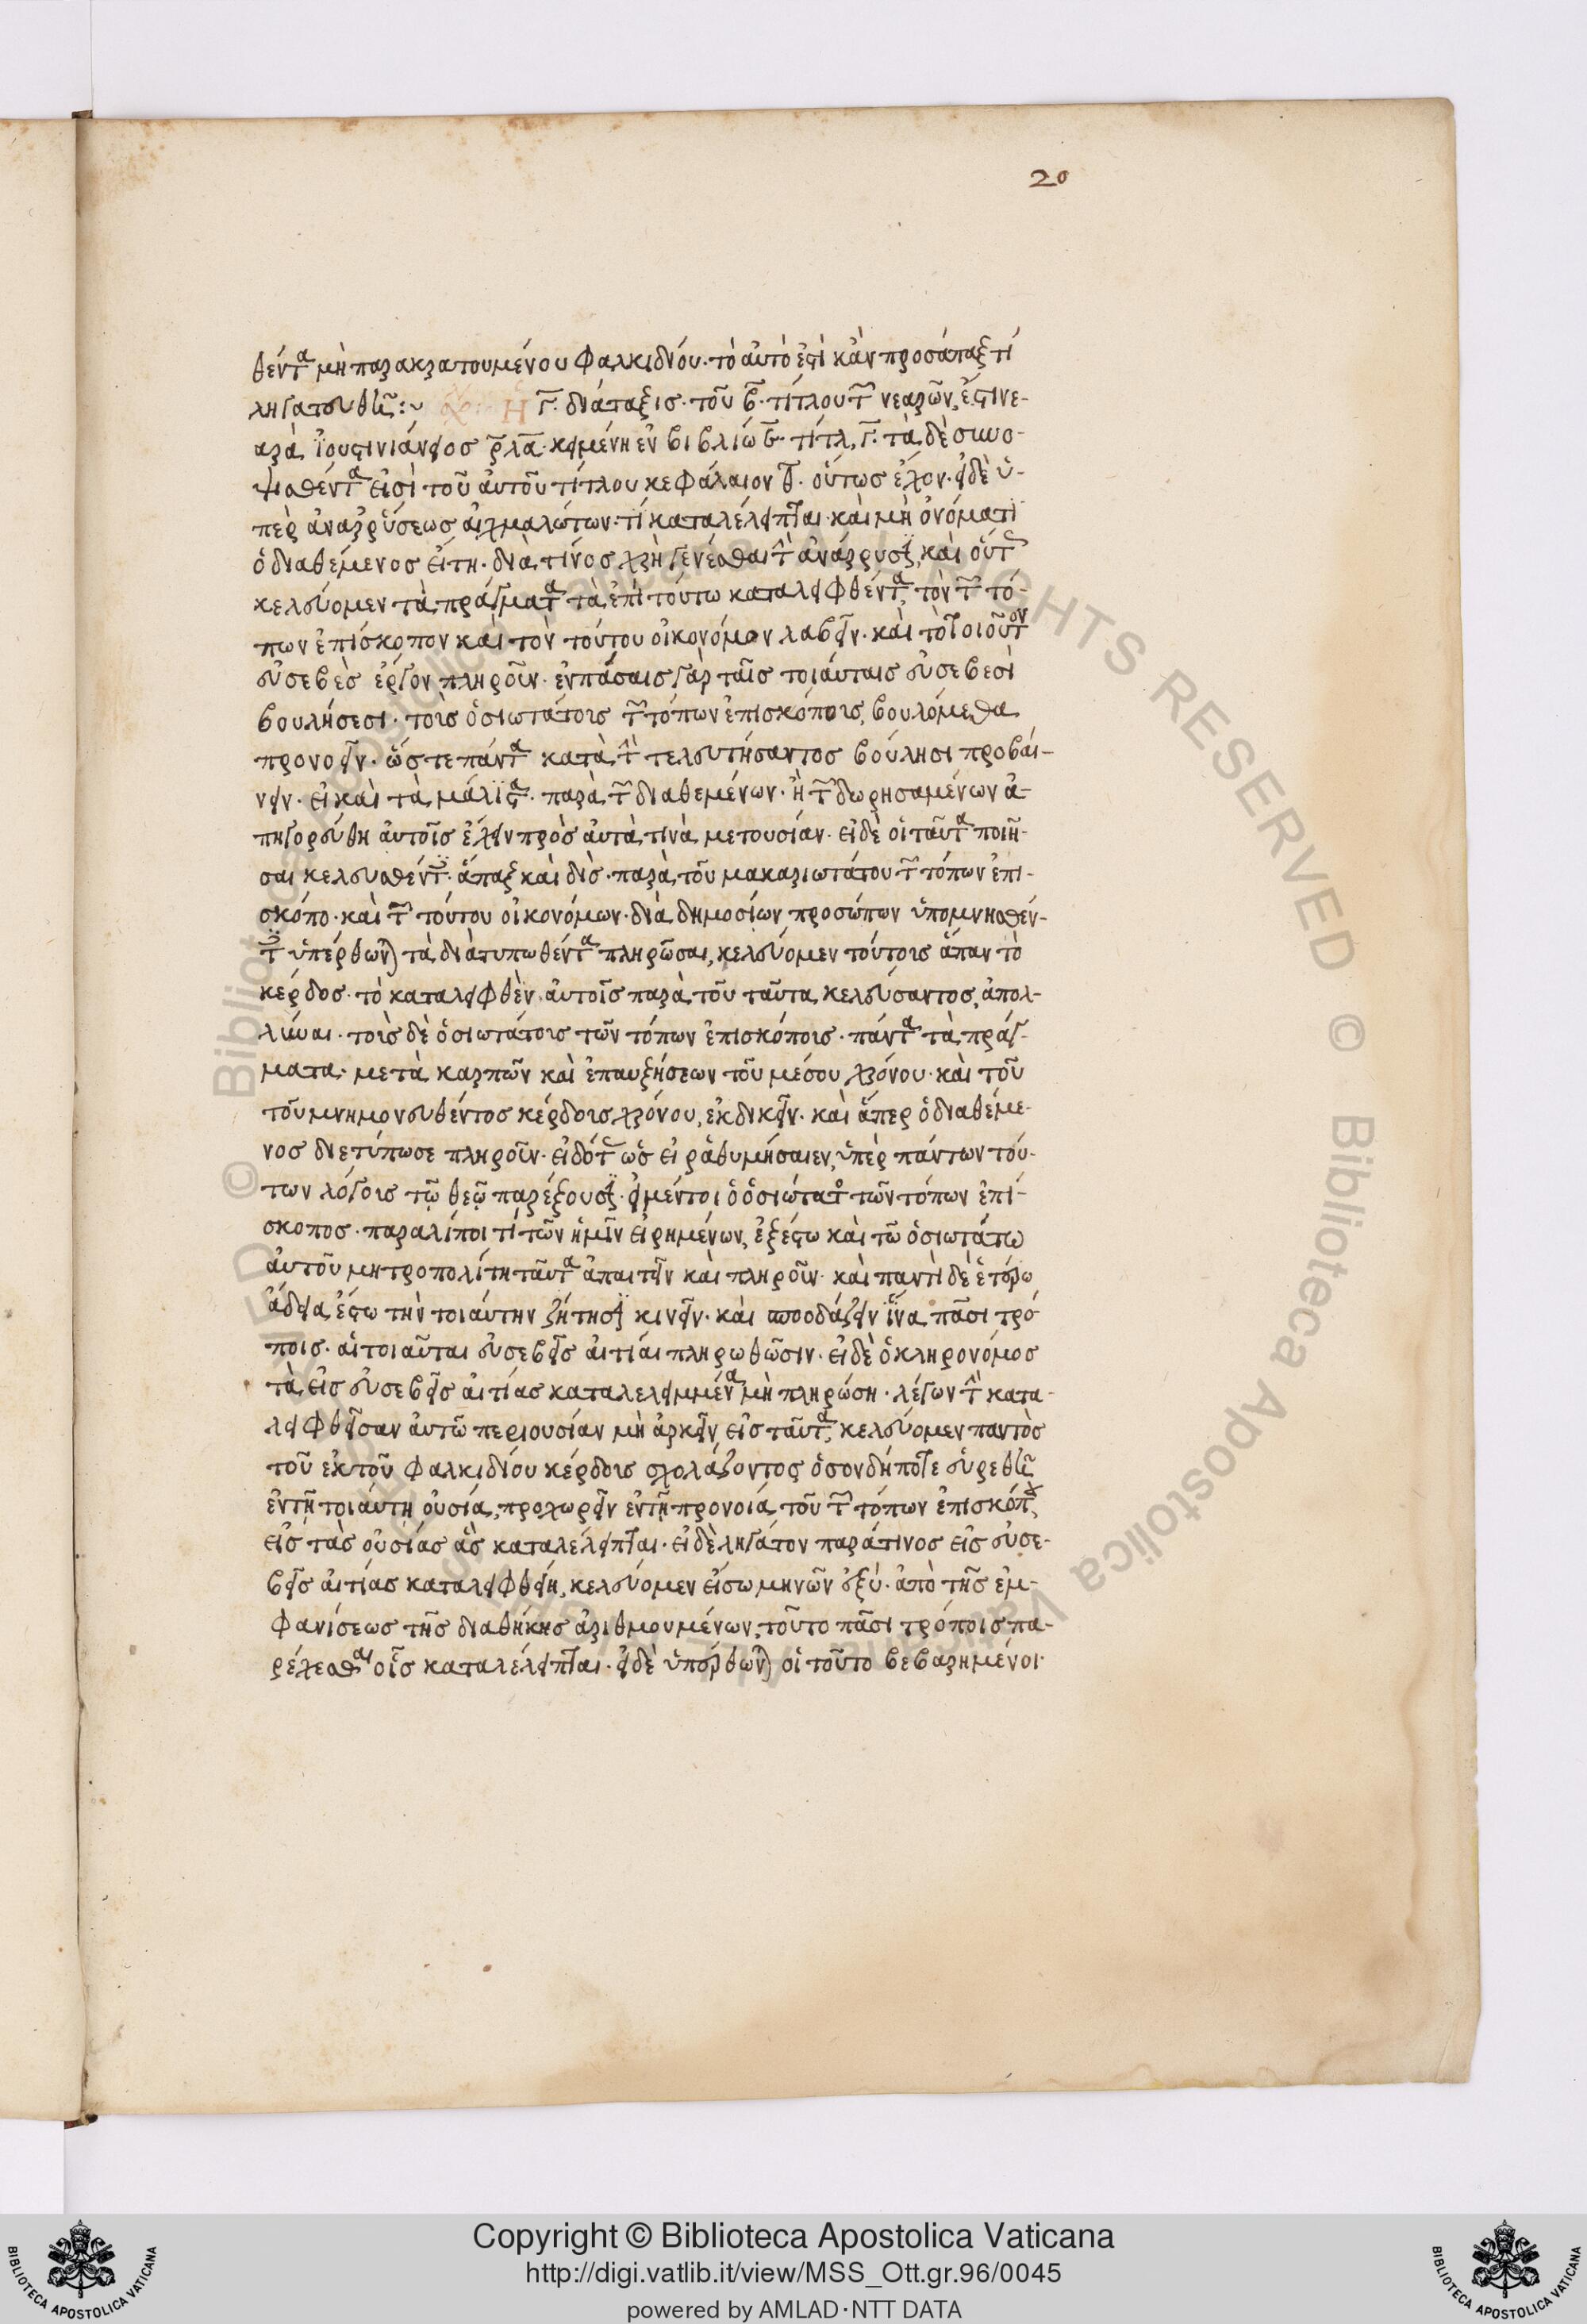 20
θέντα μὴ παρακρατουμένου φαλκιδίου· τὸ αὐτό ἐστὶ κἂν προσάπαξ τί
ληγατευθῆ:~ σχό. Ἡ γ̄. διάταξις τοῦ β̄. τίτλου τῶν νεαρῶν, ἐστι νε-
αρὰ ἰουστινιάνειος ρ̄λᾱ. κειμένη ἐν βιβλίω ε̄ τίτλ, γ̄. τὰ δὲ συνο-
ψισθέντα εἰσὶ τοῦ αὐτοῦ τίτλου κεφάλαιον θ̄. οὕτως ἔχον· εἰ δὲ ὑ-
πὲρ ἀναρρύσεως αἰχμαλώτων· τί καταλέλειπται· καὶ μὴ ὀνόματι
ὁ διαθέμενος εἴπη· διὰ τίνος χρὴ γενέσθαι τὴν ἀνάρρυσιν, καὶ οὕτως
κελεύομεν τὰ πράγματα τὰ ἐπὶ τούτω καταλειφθέντα, τὸν τῶν τό-
πων ἐπίσκοπον καὶ τὸν τούτου οἰκονόμον λαβεῖν· καὶ τὸ τοιοῦτον
εὐσεβὲς ἔργον πληροῦν· ἐν πάσαις γὰρ ταῖς τοιάυταις εὐσεβεσὶ
βουλήσεσι· τοῖς ὁσιωτάτοις τῶν τόπων ἐπισκόποις, βουλόμεθα
προνοεῖν· ὥστε πάντα κατὰ τὴν τελευτήσαντος βούλησι προβαί-
νειν· εἰ καὶ τὰ μάλιστα· παρὰ τῶν διαθεμένων· ἢ τῶν δωρησαμένων ἀ-
πηγορεύθη αὐτοῖς ἔχειν πρὸς αὐτὰ τινὰ μετουσίαν· εἰ δὲ οἱ ταῦτα ποιῆ-
σαι κελευσθέντες· ἅπαξ καὶ δὶς· παρὰ τοῦ μακαριωτάτου τῶν τόπων ἐπι-
σκόπο· καὶ τῶν τούτου οἰκονόμων· διὰ δημοσίων προσώπων ὑπομνησθέν-
τες ὑπέρθωνται τὰ διατυπωθέντα πληρῶσαι, κελεύομεν τούτοις ἅπαν τὸ
κέρδος· τὸ καταλειφθὲν αὐτοῖς παρὰ τοῦ ταῦτα κελεύσαντος, ἀπολ-
λύναι· τοῖς δὲ ὁσιωτάτοις τῶν τόπων ἐπισκόποις· πάντα τὰ πράγ-
ματα· μετὰ καρπῶν καὶ ἐπαυξήσεων τοῦ μέσου χρόνου· καὶ τοῦ
τοῦ μνημονευθέντος κέρδοις χρόνου, ἐκδικεῖν· καὶ ἅπερ ὁ διαθέμε-
νος διετύπωσε πληροῦν· εἰδότες ὡς εἰ ῥαθυμήσαιεν, ὑπὲρ πάντων τού-
των λόγοις τῷ θεῷ παρέξουσιν· εἰ μέντοι ὁ ὁσιώτατος τῶν τόπων ἐπί-
σκοπος· παραλίποι τί τῶν ἡμῖν εἰρημένων, ἐξέστω καὶ τῶ ὁσιωτάτω
αὐτοῦ μητροπολίτη ταῦτα ἀπαιτεῖν καὶ πληροῦν· καὶ παντὶ δὲ ἑτέρω
ἄδεια ἔστω τὴν τοιάυτην ζήτησιν κινεῖν· καὶ σπουδάζειν ἵνα πᾶσι τρό
ποις· αἱ τοιαῦται εὐσεβεῖς αἰτίαι πληρωθῶσιν· εἰ δὲ ὁ κληρονόμος
τὰ εἰς εὐσεβεῖς αἰτίας καταλελειμμένα μὴ πληρώση· λέγων τὴν κατα-
λειφθεῖσαν αὐτῶ περιουσίαν μὴ ἀρκεῖν εἰς ταῦτα, κελεύομεν παντὸς
τοῦ ἐκ τοῦ φαλκιδίου κέρδοις σχολάζοντος ὁσονδήποτε εὑρεθῆ
ἐν τῆ τοιάυτη οὐσία, προχωρεῖν ἐν τῆ προνοιά τοῦ τῶν τόπων ἐπισκόπου,
εἰς τὰς οὐσίας ἃς καταλέλειπται· εἰ δὲ ληγάτον παρά τινος εἰς εὐσε-
βεῖς αἰτίας καταλειφθείη, κελεύομεν εἴσω μηνῶν ἓξ· ἀπὸ τῆς ἐμ-
φανίσεως τῆς διαθήκης ἀριθμουμένων, τοῦτο πᾶσι τρόποις πα-
ρέχεσθαι οἷς καταλέλειπται· εἰ δὲ ὑπέρθωνται οἱ τοῦτο βεβαρημένοι·
Copyright © Biblioteca Apostolica Vaticana
http://digi.vatlib.it/view/MSS_Ott.gr.96/0045
powered by AMLAD·NTT DATA